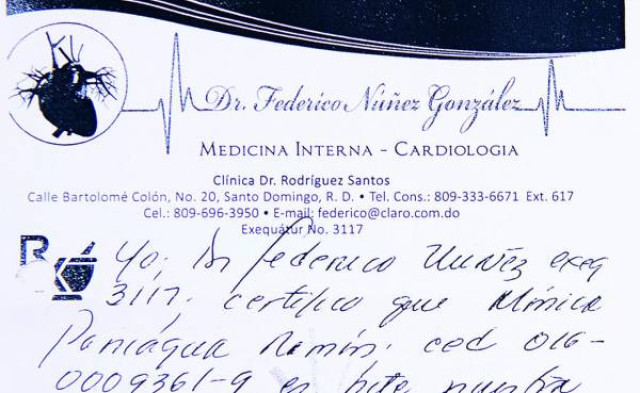 Dr. Federico Núñez González
MEDICINA INTERNA - CARDIOLOGIA
Clínica Dr. Rodríguez Santos
Calle Bartolomé Colón, No. 20, Santo Domingo, R. D. • Tel. Cons.: 809-333-6671 Ext. 617
Cel.: 809-696-3950 • E-mail: federico@claro.com.do
Exequátur No. 3117
Rx Yo, Dr Federico Nuñez exeq
3117, certifico que Mónica
Paniágua Ramón. ced 016-
0009361-9 es